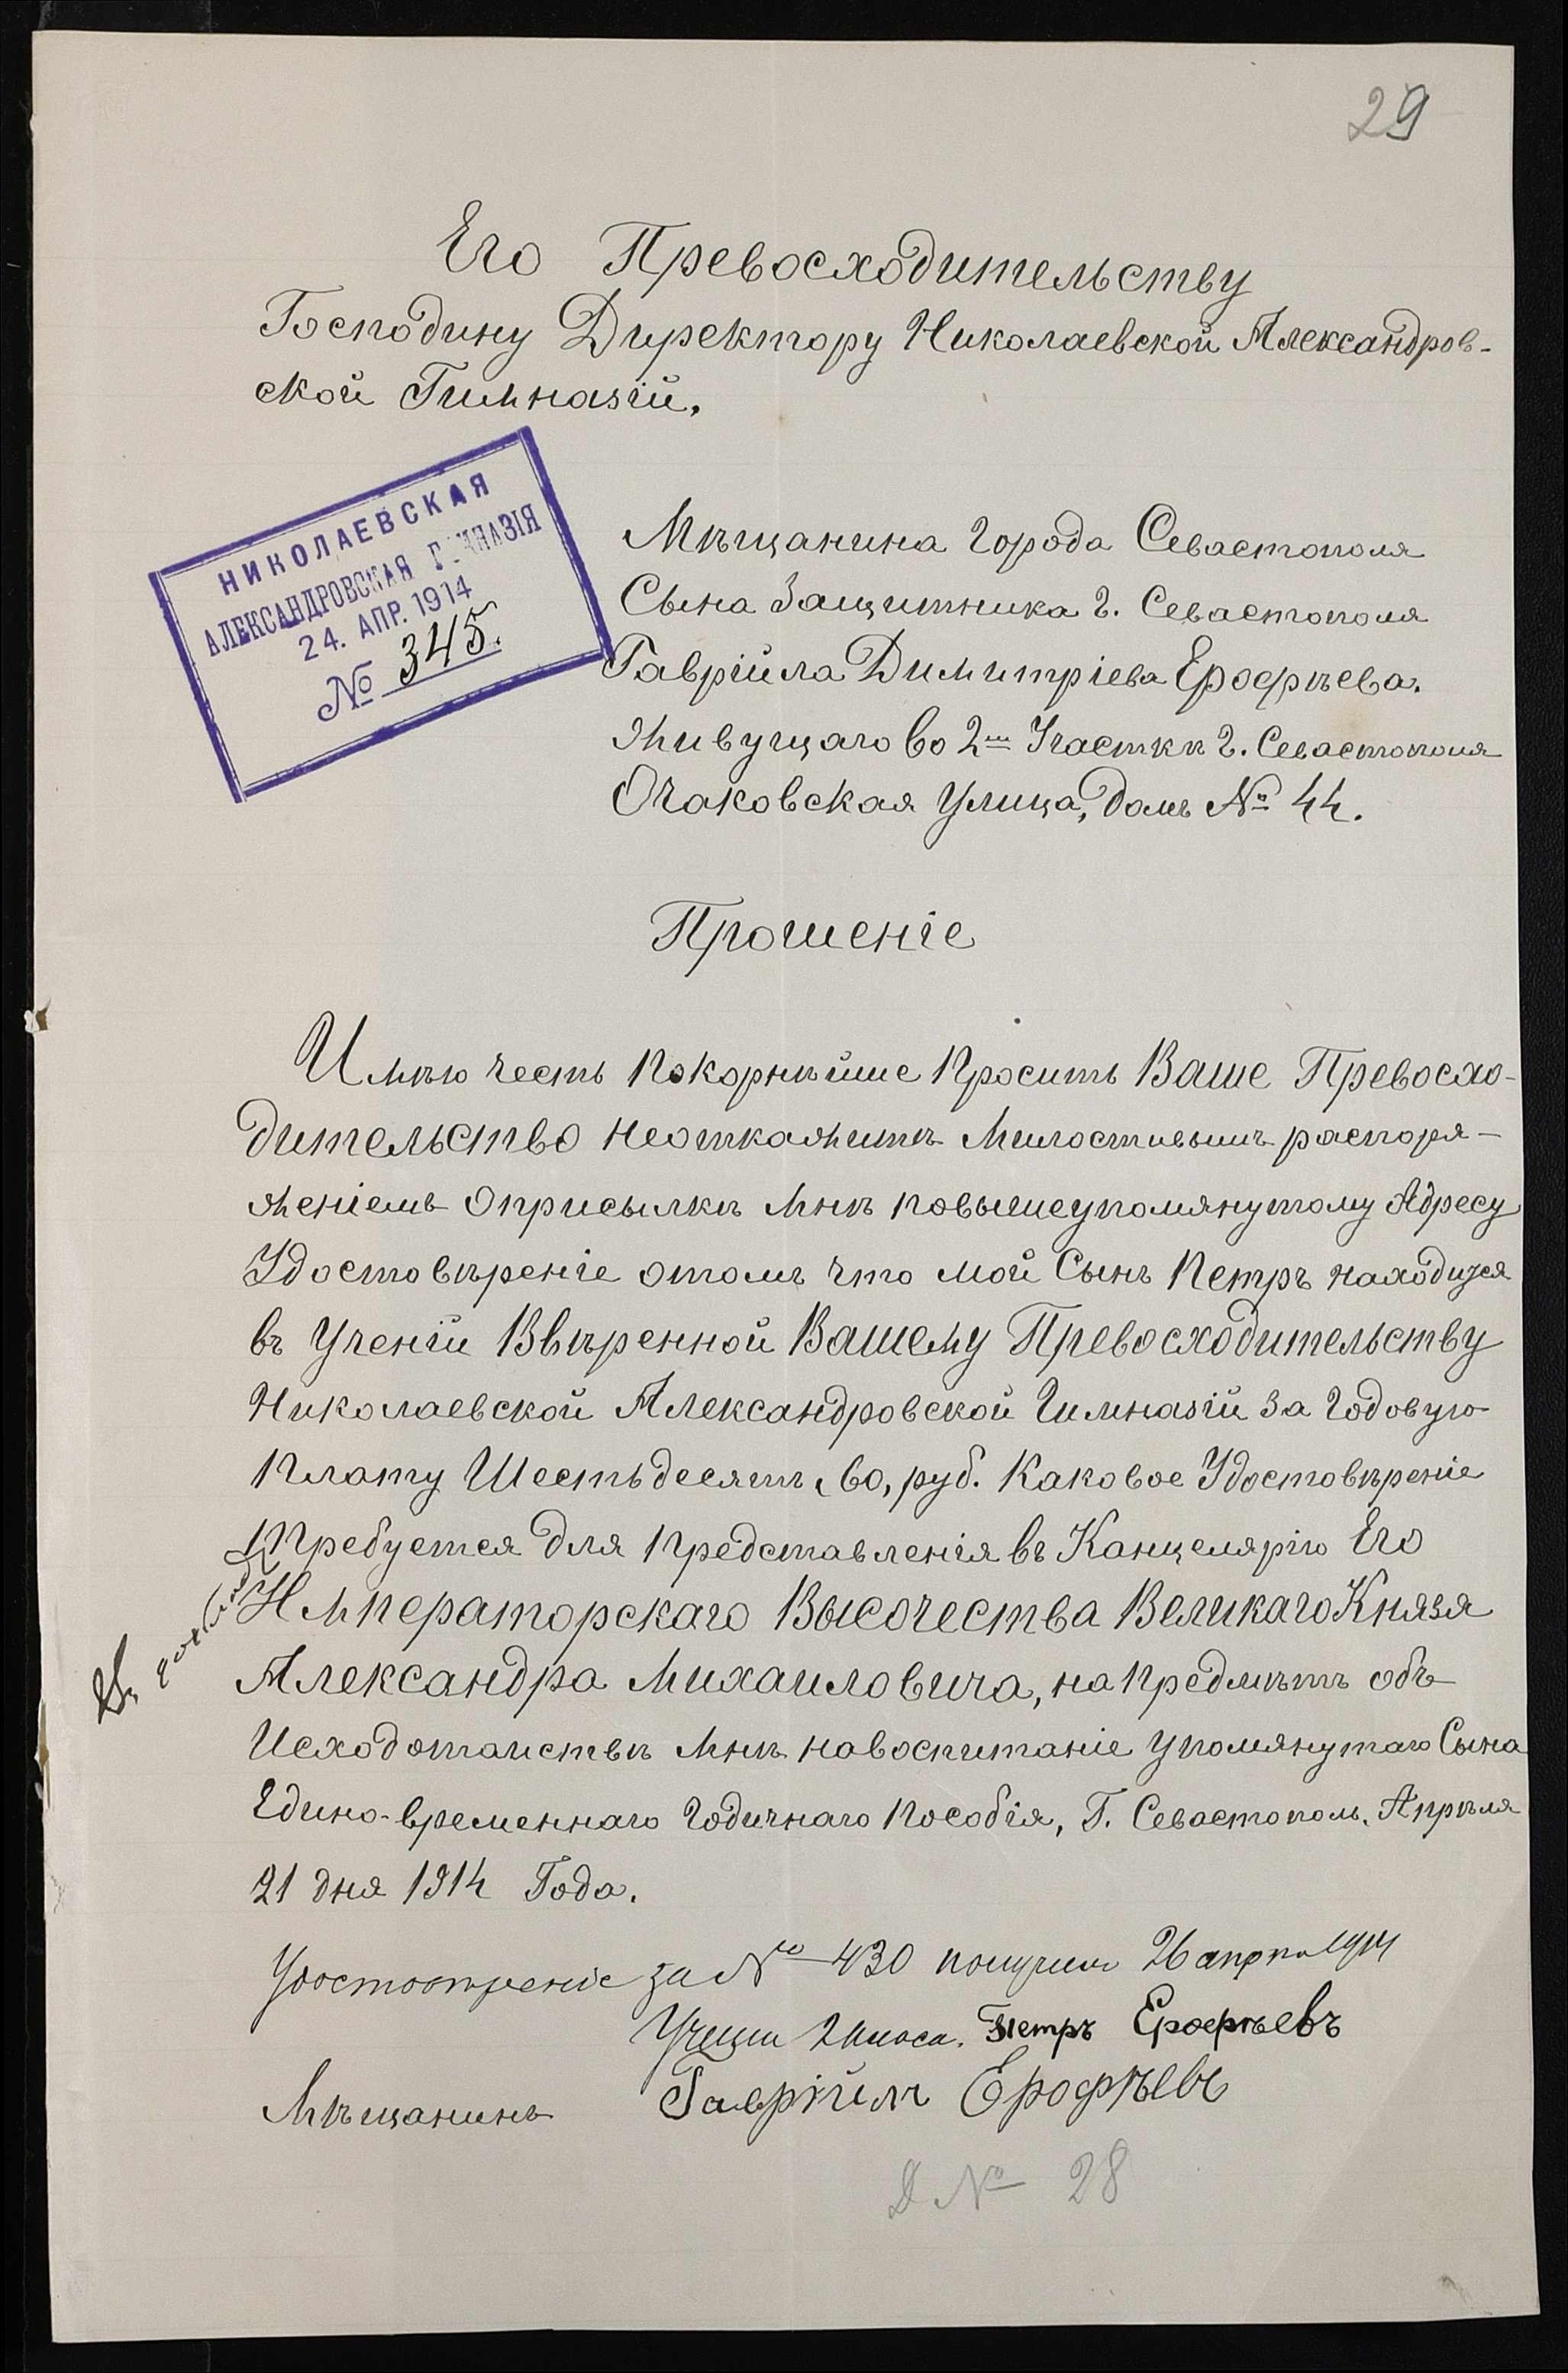 29
Его Превосходительству
Господину Директору Николаевской Александров-
ской Гимназій.
НИКОЛАЕВСКАЯ
АЛЕКСАНДРОВСКАЯ ГИМНАЗІЯ
24. АПР. 1914
№ 345.
Мѣщанина города Севастополя
Сына Защитника г. Севастополя
Гавріила Димитріева Ерофѣева.
Живущаго во 2м Участкѣ г. Севастополя
Очаковская улица, домъ № 44.
Прошеніе
Имѣю честь Покорнѣйше Просить Ваше Превосхо-
дительство неоткажить Милостивымъ распоря-
женіемъ Оприсылкѣ Мнѣ повышеупомянутому Адресу
Удостовѣреніе отомъ что мой Сынъ Петръ находится
въ Ученіи Ввѣренной Вашему Превосходительству
Николаевской Александровской Гимназій за годовую
Плату Шестьдесятъ 60, руб. Каковое Удостовѣреніе
требуется для Представленія въ Канцелярію Его
Императорскаго Высочества Великаго Князя
Александра Михаиловича, на Предмѣтъ объ
Исходотаиствѣ Мнѣ навоспитаніе упомянутаго Сына
Едино-временнаго годичнаго Пособія, Г. Севастополь, Апрѣля
21 дня 1914 Года.
Удостовѣреніе за № 430 получилъ 26 апрѣля 1914
Ученик 2 класа. Петръ Ерофѣевъ
Мѣщанинъ Гавріилъ Ерофѣевъ
Д № 28